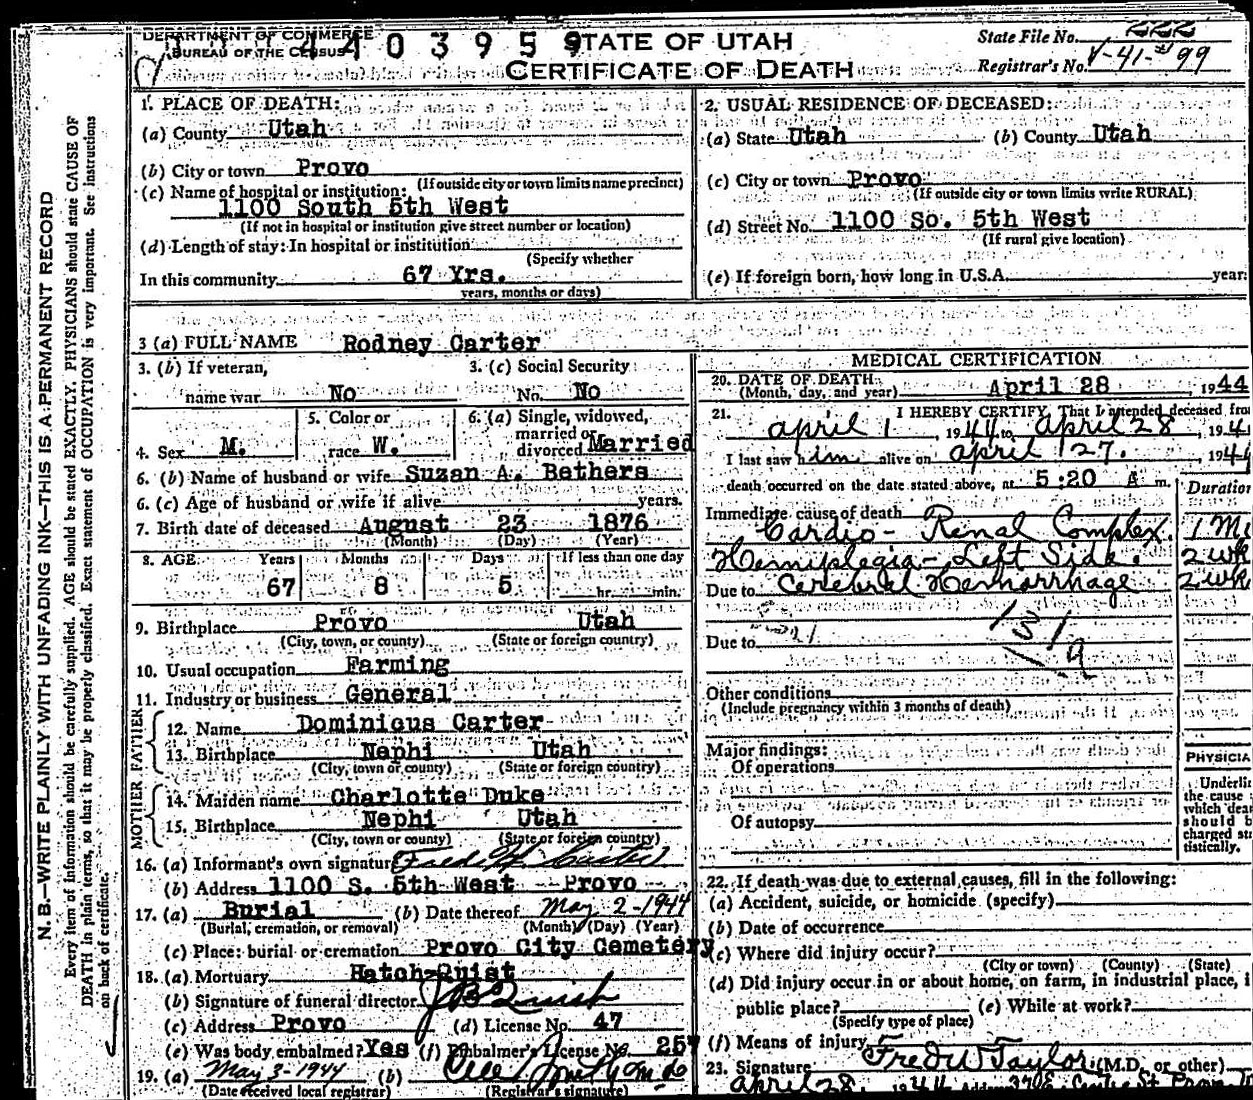 N. B.—WRITE PLAINLY WITH UNFADING INK—THIS IS A PERMANENT RECORD
Every item of information should be carefully supplied. AGE should be stated EXACTLY. PHYSICIANS should state CAUSE OF
DEATH in plain terms, so that it may be properly classified. Exact statement of OCCUPATION is very important. See instructions
on back of certificate.
DEPARTMENT OF COMMERCE
BUREAU OF THE CENSUS
4 4 0 3 9 5 9
STATE OF UTAH
CERTIFICATE OF DEATH
State File No. 222
Registrar's No. V-41-#99
1. PLACE OF DEATH:
(a) County Utah
(b) City or town Provo
(If outside city or town limits name precinct)
(c) Name of hospital or institution:
1100 South 5th West
(If not in hospital or institution give street number or location)
(d) Length of stay: In hospital or institution
(Specify whether
In this community 67 Yrs.
years, months or days)
2. USUAL RESIDENCE OF DECEASED:
(a) State Utah (b) County Utah
(c) City or town Provo
(If outside city or town limits write RURAL)
(d) Street No. 1100 So. 5th West
(If rural give location)
(e) If foreign born, how long in U.S.A. year
3 (a) FULL NAME Rodney Carter
3. (b) If veteran,
name war No
3. (c) Social Security
No. No
4. Sex M.
5. Color or
race W.
6. (a) Single, widowed,
married or
divorced Married
6. (b) Name of husband or wife Suzan A. Bethers
6. (c) Age of husband or wife if alive years.
7. Birth date of deceased August 23 1876
(Month) (Day) (Year)
8. AGE Years Months Days If less than one day
67 8 5 hr. min.
9. Birthplace Provo Utah
(City, town, or county) (State or foreign country)
10. Usual occupation Farming
11. Industry or business General
FATHER
12. Name Dominicus Carter
13. Birthplace Nephi Utah
(City, town or county) (State or foreign country)
MOTHER
14. Maiden name Charlotte Duke
15. Birthplace Nephi Utah
(City, town or county) (State or foreign country)
16. (a) Informant's own signature Carter
(b) Address 1100 S. 5th West Provo
17. (a) Burial (b) Date thereof May 2-1944
(Burial, cremation, or removal) (Month) (Day) (Year)
(c) Place: burial or cremation Provo City Cemetery
18. (a) Mortuary Hatch-Quist
(b) Signature of funeral director
(c) Address Provo (d) License No. 47
(e) Was body embalmed? Yes (f) Embalmer's License No. 257
19. (a) May 3-1944 (b)
(Date received local registrar) (Registrar's signature)
MEDICAL CERTIFICATION
20. DATE OF DEATH:
(Month, day, and year) April 28, 1944
21. I HEREBY CERTIFY, That I attended deceased fro
April 1, 1944 to April 28, 194
I last saw him alive on April 27, 194
death occurred on the date stated above, at 5:20 A m.
Duration
Immediate cause of death
Cardio-Renal Complex. 1 M
Hemiplegia-Left Side. 2 wk
Due to Cerebral Hemorrhage 2 wk
131
a
Due to
Other conditions
(Include pregnancy within 3 months of death)
Major findings:
Of operations
Of autopsy
PHYSICIA
Underli
the cause
which dea
should b
charged sta
tistically.
22. If death was due to external causes, fill in the following:
(a) Accident, suicide, or homicide (specify)
(b) Date of occurrence
(c) Where did injury occur?
(City or town) (County) (State)
(d) Did injury occur in or about home, on farm, in industrial place, i
public place? (e) While at work?
(Specify type of place)
(f) Means of injury
23. Signature Fred W Taylor (M.D. or other)
April 28, 1944 Address 37 E. Centre St Prov